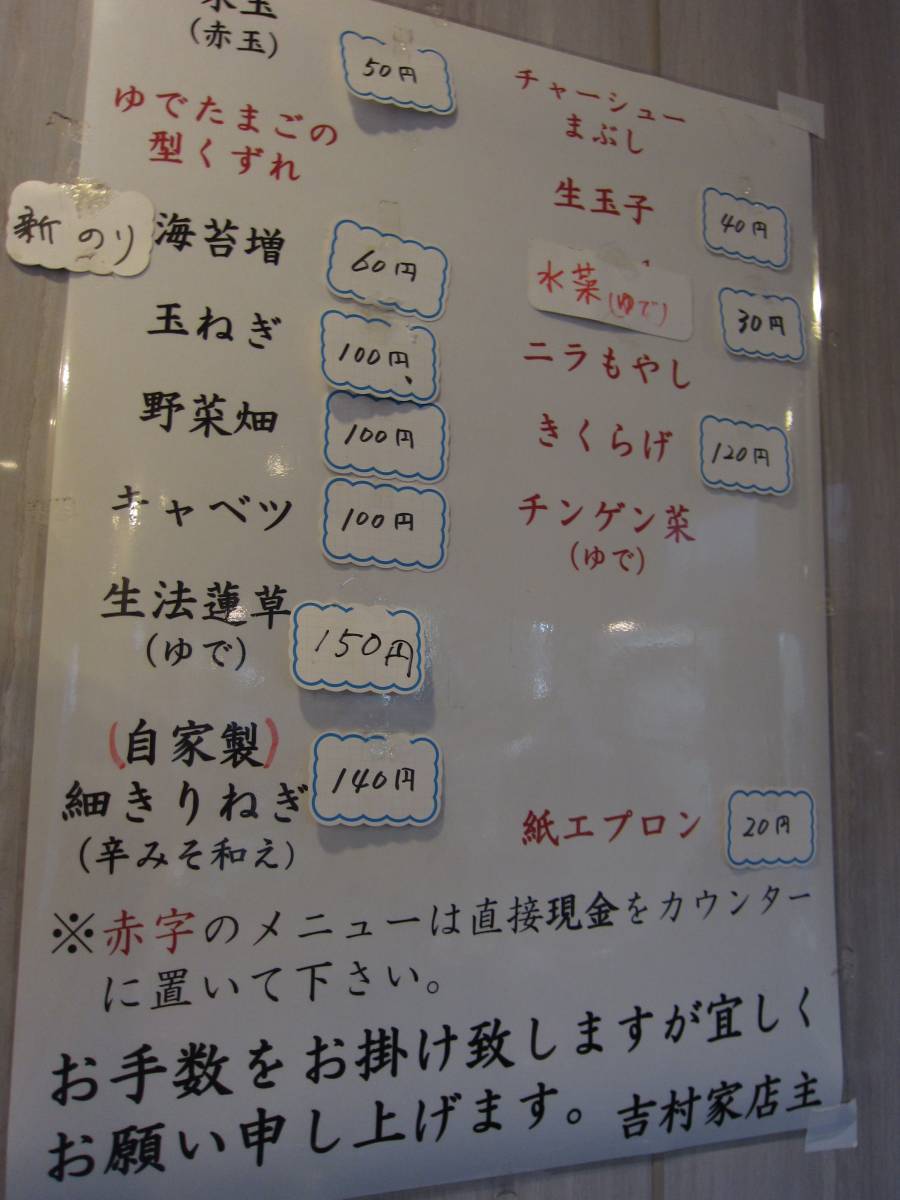 (赤玉) 50円
ゆでたまごの
型くずれ
新のり 海苔増 60円
玉ねぎ 100円
野菜畑 100円
キャベツ 100円
生法蓮草 150円
(ゆで)
(自家製)
細きりねぎ 140円
(辛みそ和え)
チャーシュー
まぶし
生玉子 40円
水菜(ゆで) 30円
ニラもやし
きくらげ 120円
チンゲン菜
(ゆで)
紙エプロン 20円
※赤字のメニューは直接現金をカウンター
に置いて下さい。
お手数をお掛け致しますが宜しく
お願い申し上げます。吉村家店主